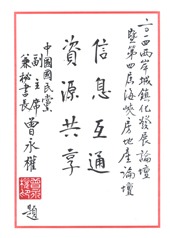 二〇一四兩岸城鎮化發展論壇
暨第四屆海峽房地產論壇
信息互通
資源共享
中國國民黨
副主席
兼秘書長
曾永權
題